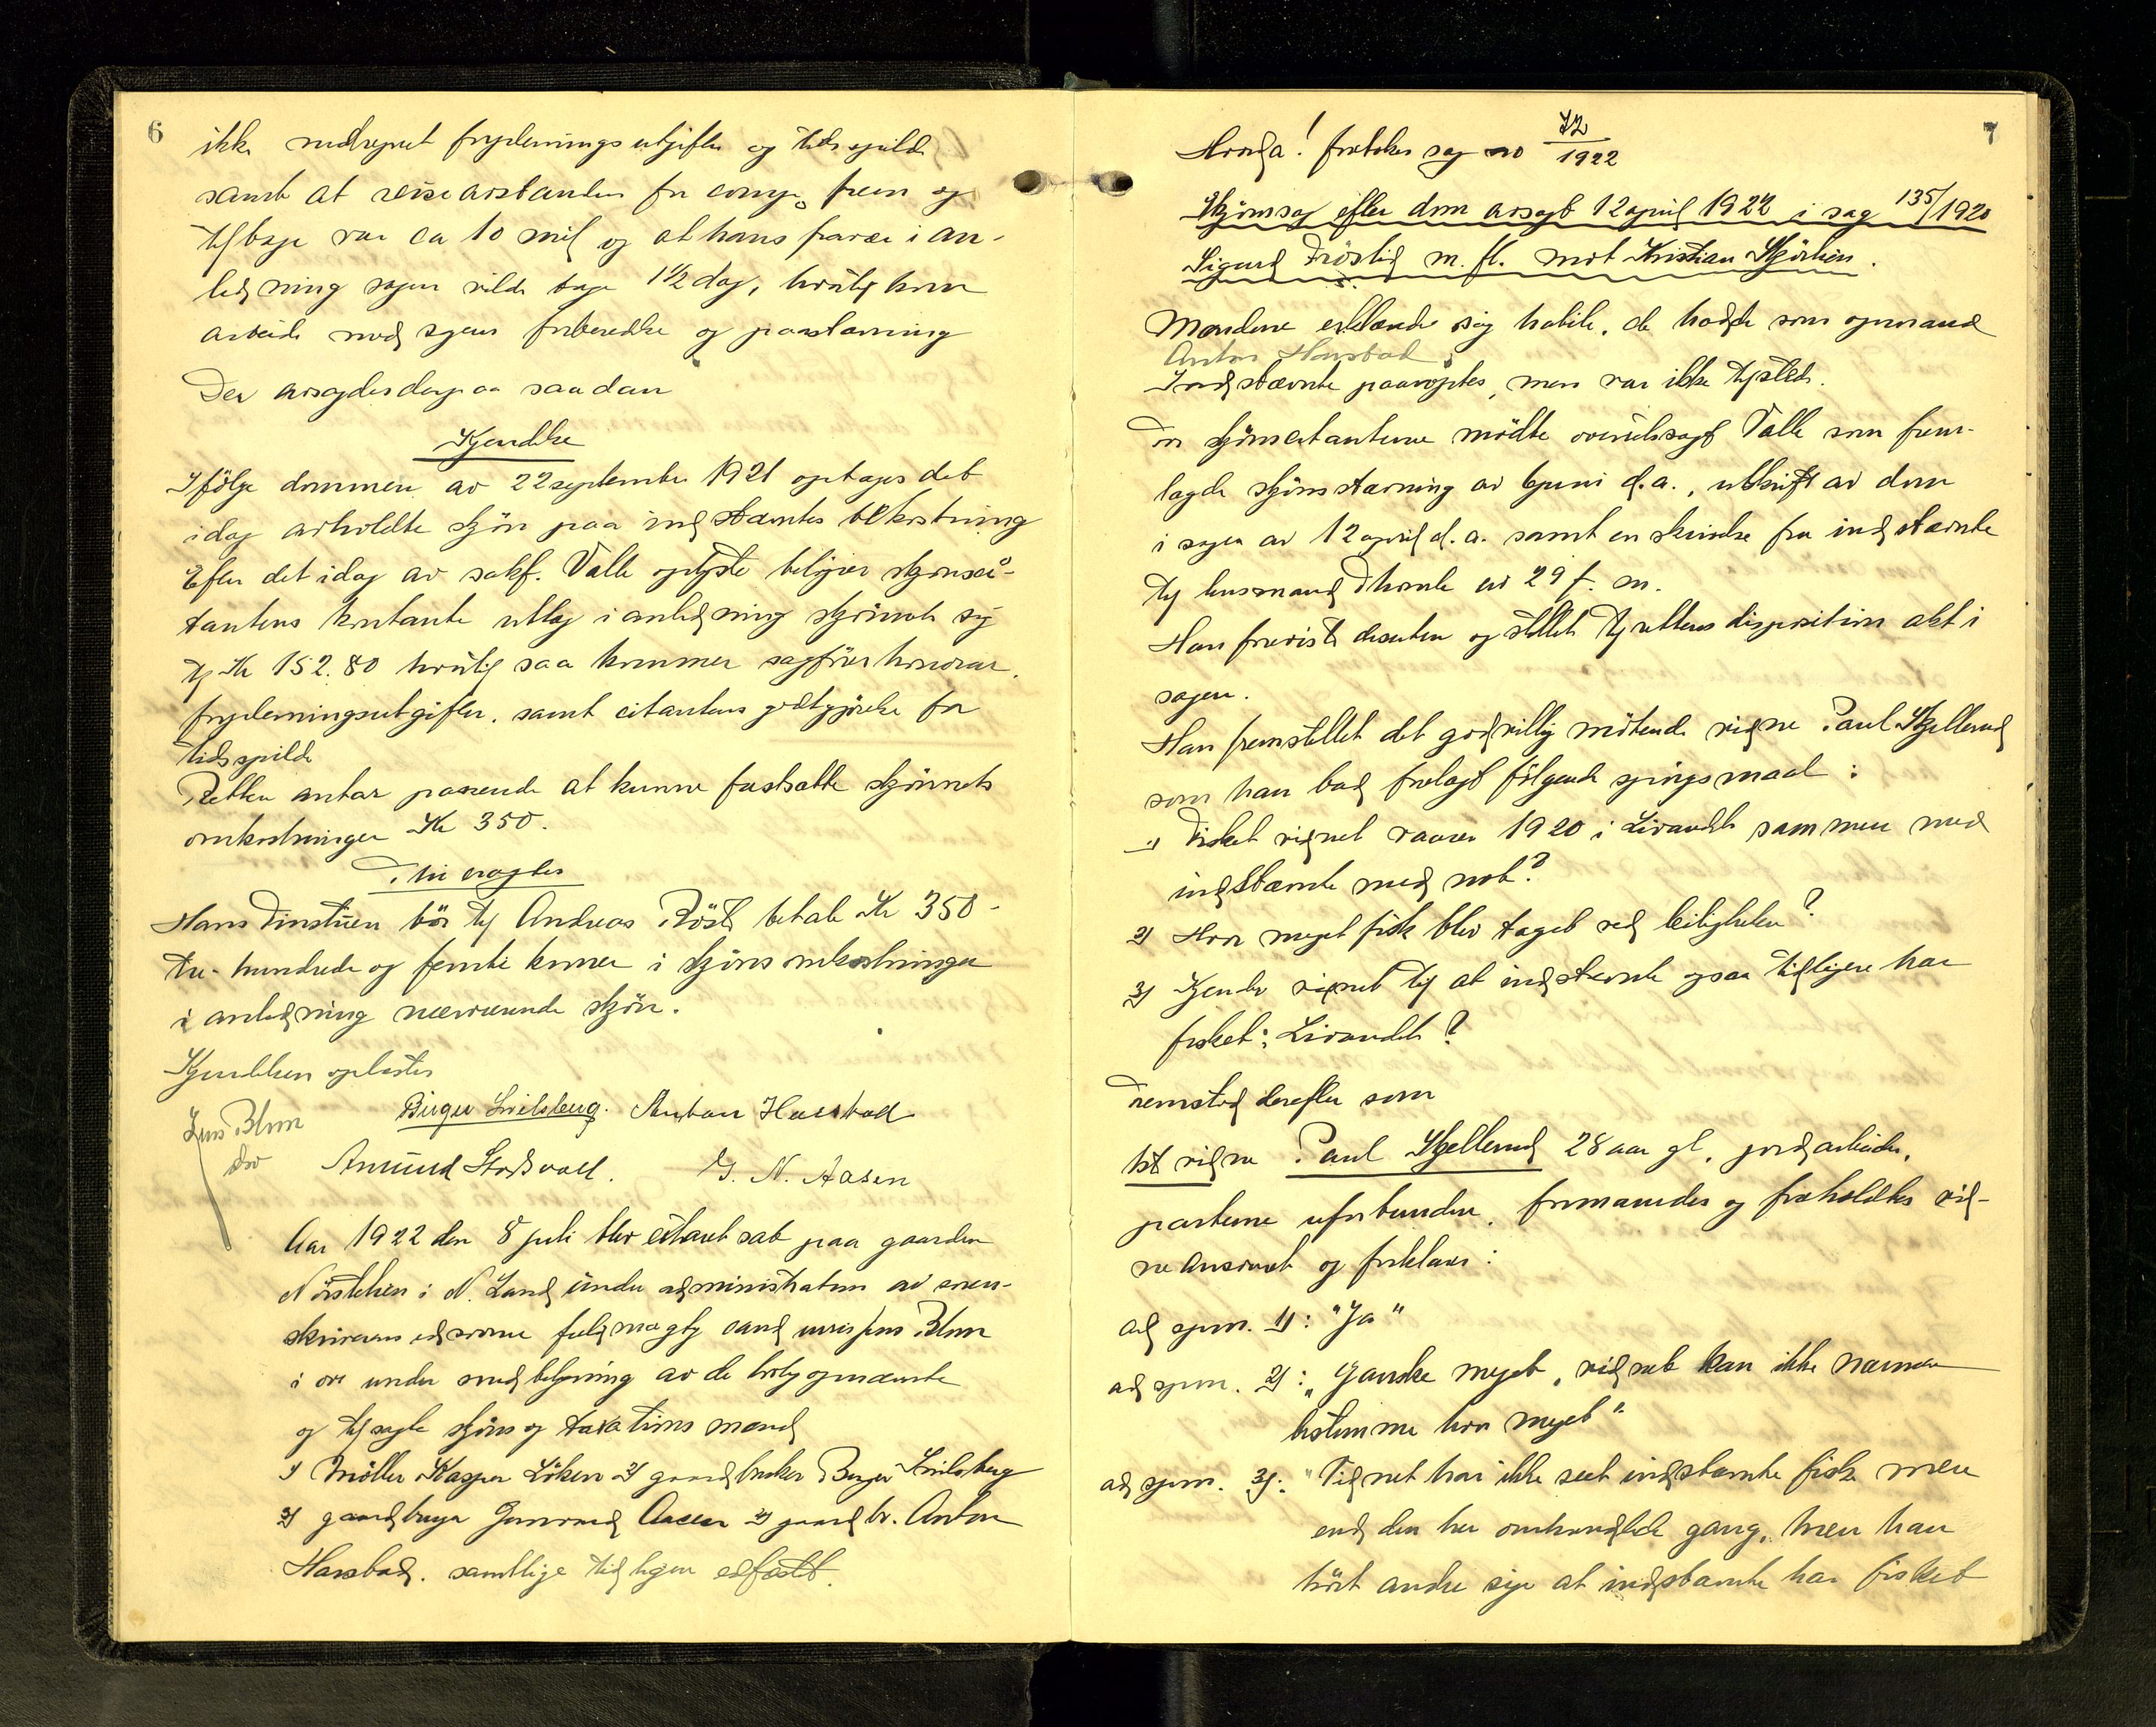 6
ikke medregnet forplemings utgifter og tidsspilde
samt at reiseavstanden for comp. frem og
tilbage var ca 10 mil og at hans fravær i an-
ledning sagen vilde tage 1 1/2 dag, hvortil kom
arbeide med sagens forberedelse og paastævning
Der avsagdes derpaa saadan
Kjendelse
Ifölge dommen av 22 september 1921 optages det
idag avholdte skjön paa indstævntes bekostning
Efter det idag av sakf. Valle oplyste belöper skjönsci-
tantens kontante utlæg i anledning skjönnet sig
til Kr 152.80 hvortil saa kommer sagförerhonorar,
forplemingsutgifter, samt citantens godtgjörelse for
tidsspilde
Retten antar passende at kunne fastsætte skjönnets
omkostninger Kr 350.
Thi eragtes
Hans Finstuen bör til Andreas Röste betale Kr 350-
tre-hundrede og femti kroner i skjöns omkostninger
i anledning nærværende skjön.
Kjendelsen oplæstes
Jens Blom Birger Smilsberg. Anton Harstad
dss Amund Stadsvold. G. N. Aasen
Aar 1922 den 8 juli blev extraret sat paa gaarden
Nörstelien i N. Land under administration av soren-
skriverens edsvorne fuldmægtig cand juris Jens Blom
i  under medbetjening av de hertil opnævnte
og tilsagte skjöns og taxations mænd
1) Möller Kasper Löken 2) gaardbruker Birger Smilsberg
3) gaardbruger Gunvand Aasen 4) gaardbr. Anton
Harstad. samtlige tidligere edfæstet.
7
Hvorda! foretokes sag no 72/1922
Skjönssag efter dom avsagt 12 april 1922 i sag 135/1920
Sigurd Fröslid m. fl. mot Kristian Skjölien.
Mændene erklærede sig habile, de hadde som opmand
Anton Harstad
Indstævnte paaroptes, men var ikke tilstede.
For skjönscitantene mödte overretssagf Valle som frem-
lagde skjönsstævning av 6 juni d.a., utskrift av dom
i sagen av 12 april d.a. samt en skrivelse fra indstævnte
til lensmand Thomle av 29 f. m.
Han foreviste desuten og stillet til rettens disposition akt i
sagen.
Han fremstillet det godvillig mötende vidne Paul Skjellerud
som han bad forelagt fölgende spörgsmaal:
1) Fisket vidnet vaaren 1920 i Livandet sammen med
indstævnte med not?
2) Hvor meget fisk blev taget ved leiligheten?
3) Kjender vidnet til at indstævnte ogsaa tidligere har
fisket i Livandet?
Fremstod derefter som
1st vidne Paul Skjellerud 28 aar gl, jordarbeider,
parterne uforbunden, formanedes og foreholdtes vid-
neansvaret og forklarer:
ad spm. 1): "Ja"
ad spm. 2): "Ganske meget, vidnet kan ikke nærmere
bestemme hvor meget".
ad spm. 3): "Vidnet har ikke seet indstævnte fiske mere
end den her omhandlede gang, men han
hört andre sige at indstævnte har fisket